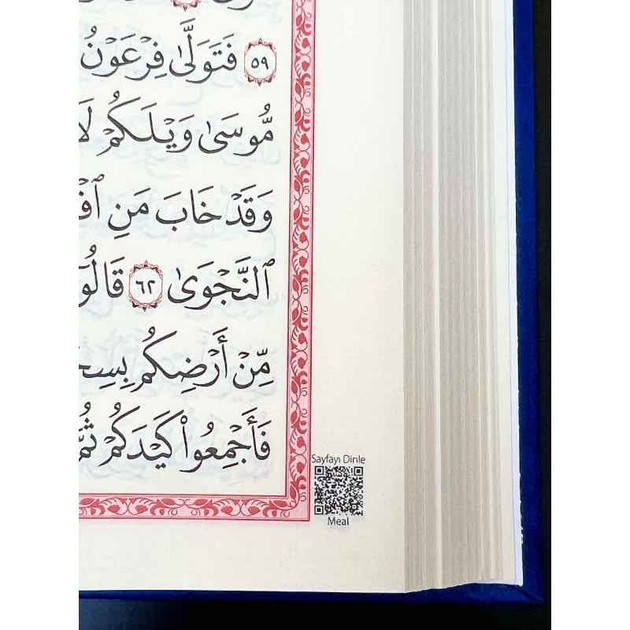 ٥٩ فَتَوَلَّىٰ فِرْعَوْنُ
مُّوسَىٰ وَيْلَكُمْ لَا
وَقَدْ خَابَ مَنِ
ٱلنَّجْوَىٰ ٦٢
مِّنْ أَرْضِكُم
فَأَجْمِعُوا۟ كَيْدَكُمْ ثُمَّ
Sayfayı Dinle
Meal